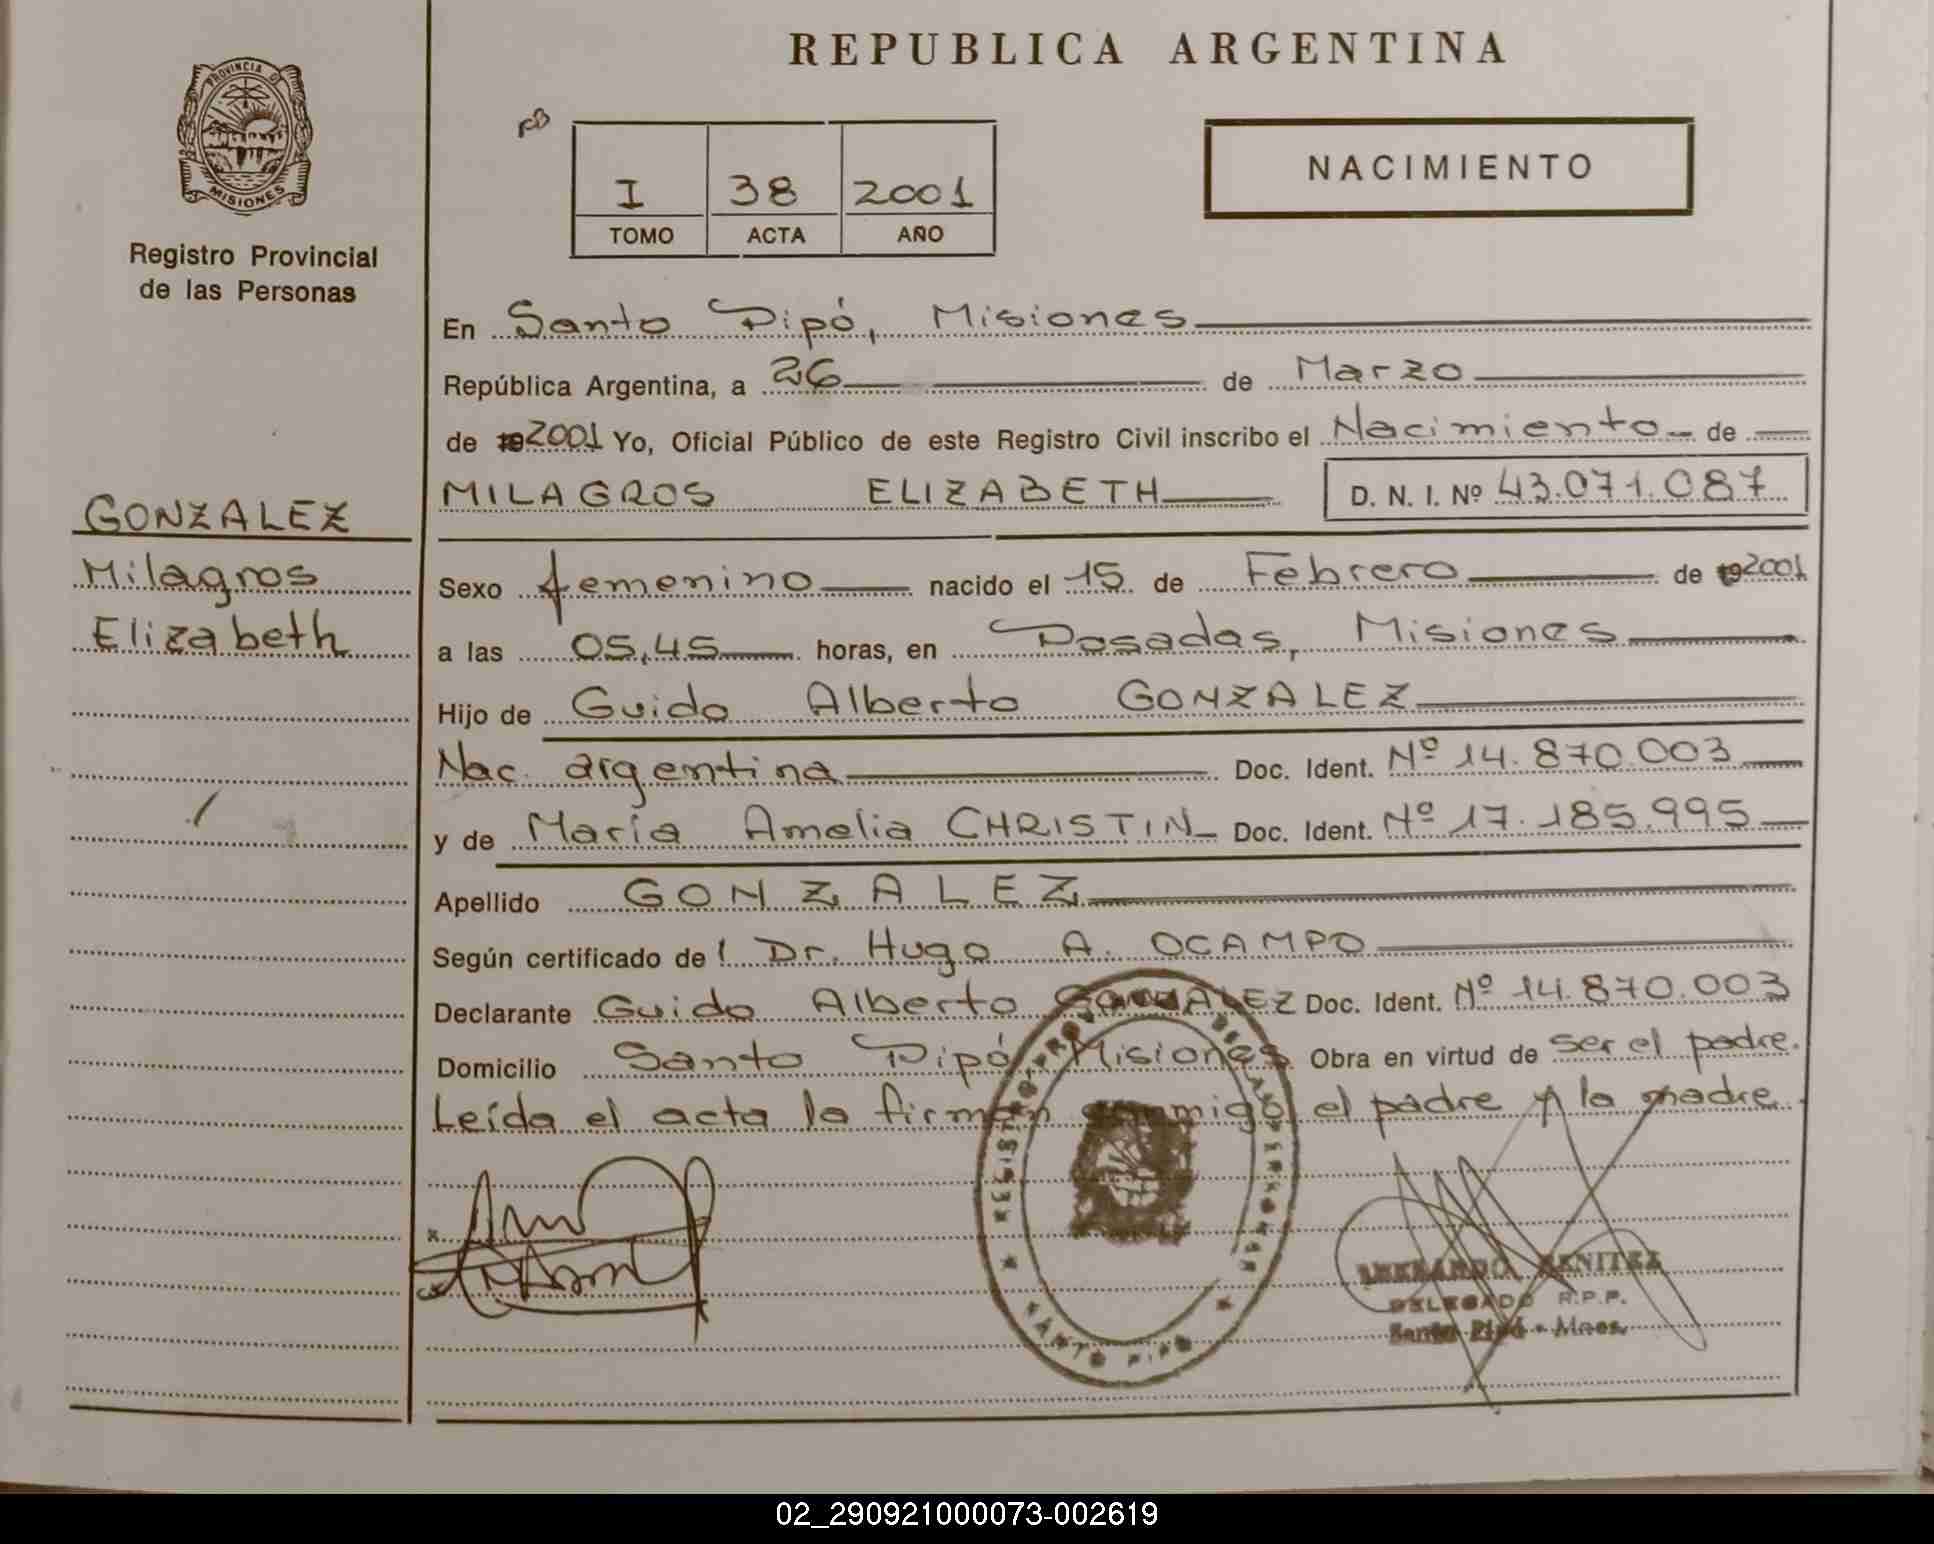 REPUBLICA ARGENTINA
PROVINCIA D
MISIONES
Registro Provincial
de las Personas
I 38 2001
TOMO ACTA AÑO
NACIMIENTO
En Santo Pipó, Misiones
República Argentina, a 26 de Marzo
de 192001 Yo, Oficial Público de este Registro Civil inscribo el Nacimiento de
MILAGROS ELIZABETH D. N. I. Nº 43.071.087
GONZALEZ
Milagros
Elizabeth
Sexo femenino nacido el 15 de Febrero de 192001
a las 05,45 horas, en Posadas, Misiones
Hijo de Guido Alberto GONZALEZ
Nac. argentina Doc. Ident. Nº 14.870.003
y de María Amelia CHRISTIN Doc. Ident. Nº 17.185.995
Apellido GONZALEZ
Según certificado de l Dr. Hugo A. OCAMPO
Declarante Guido Alberto GONZALEZ Doc. Ident. Nº 14.870.003
Domicilio Santo Pipó, Misiones Obra en virtud de ser el padre.
Leída el acta la firman conmigo el padre y la madre.
SANTO PIPO
BENITEZ
DELEGADO R.P.P.
Santo Pipó - Mnes.
02_290921000073-002619